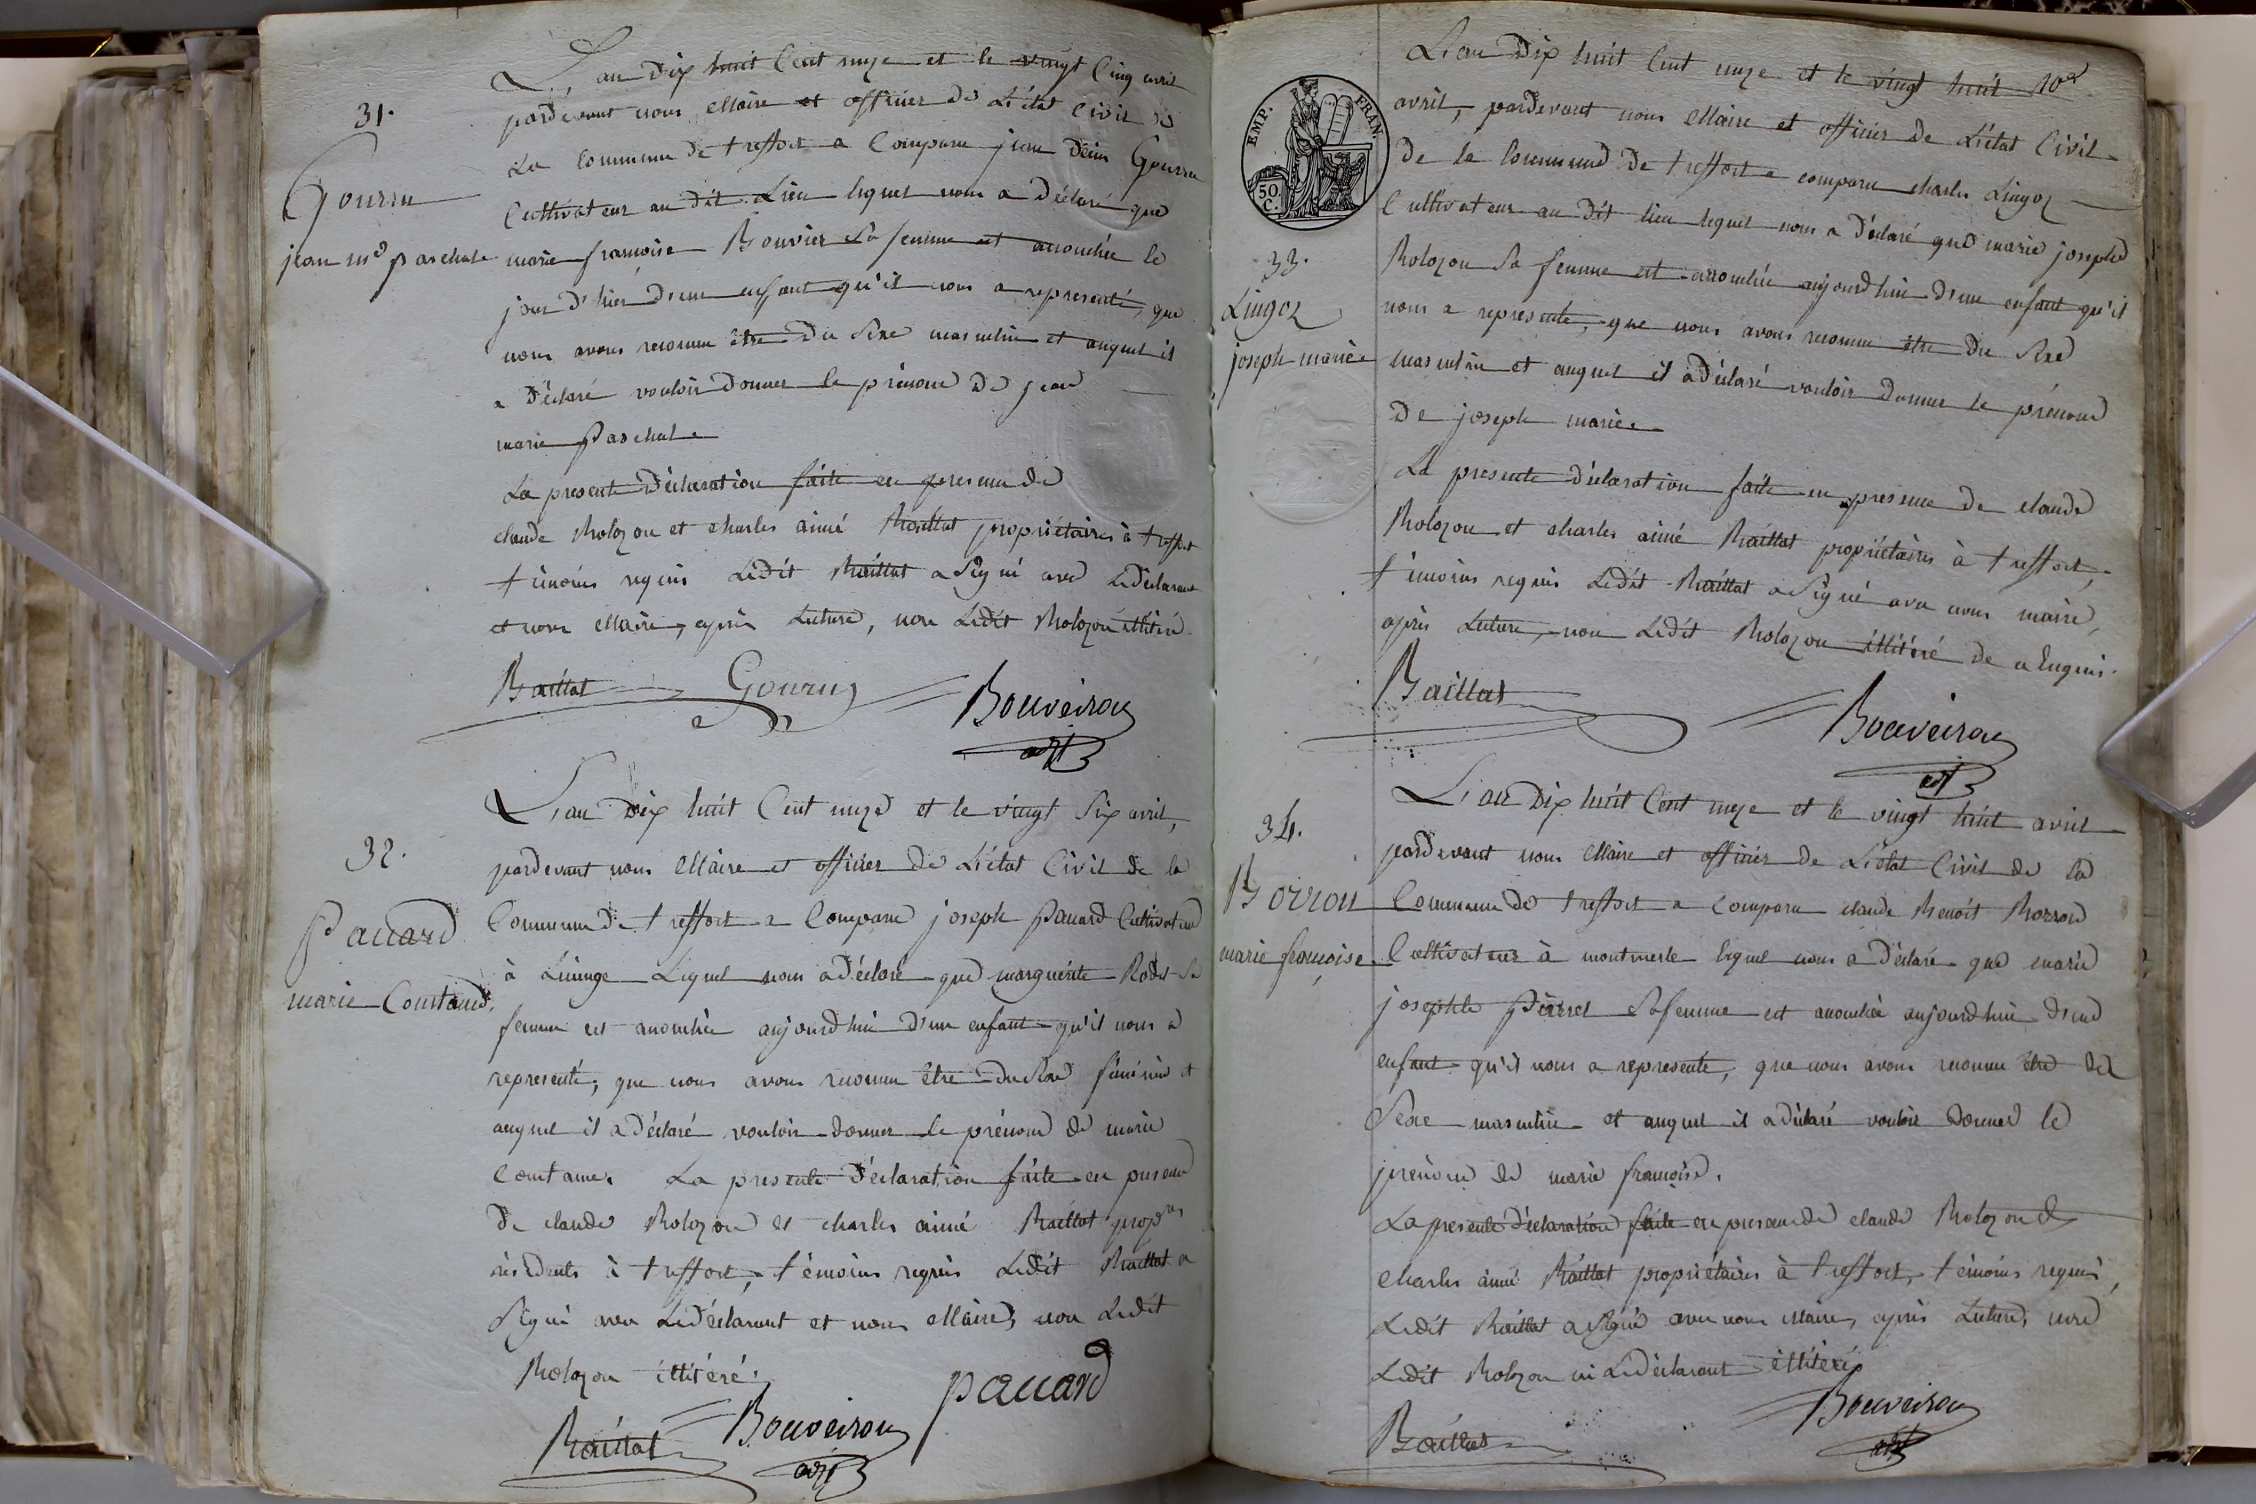 31.
Gourru
jean m.e paschale
L'an dix huit Cent onze et le vingt Cinq avril
pardevant nous Maire et officier de L'état Civil de
La Commune de treffort a Comparu jean Denis Gourru
Cultivateur au dit Lieu lequel nous a déclaré que
marie françoise Bouvier Sa femme est accouchée le
jour d'hier d'un enfant qu'il nous a representé, que
nous avons reconnu être du Sexe masculin et auquel il
a déclaré vouloir donner le prénom de jean
marie Paschale
La presente Déclaration faite en presence de
claude Bolozon et charles aimé Baillat propriétaires à treffort
témoins requis Ledit Baillat a Signé avec Ledéclarant
et nous Maire, après Lecture, non Ledit Bolozon illitéré
Baillat Gourru Bouveiron
adjt
32.
Paccard
marie Constance.
L'an dix huit Cent onze et le vingt Six avril,
pardevant nous Maire et officier de L'état Civil de la
Commune de treffort a Comparu joseph Paccard Cultivateur
à Lucinge Lequel nous a déclaré que marguerite Sa
femme est accouchée aujourdhui d'un enfant qu'il nous a
representé, que nous avons reconnu être du Sexe féminin et
auquel il a déclaré vouloir donner le prénom de marie
Constance. La presente déclaration faite en presence
de claude Bolozon et charles aimé Baillat prop.res
résidents à treffort, témoins requis Ledit Baillat a
Signé avec Ledéclarant et nous Maire, non Ledit
Bolozon illitéré.
Baillat Bouveiron Paccard
adjt
EMP. FRAN.
50.
C.
33.
Lingoz
joseph marie
L'an dix huit Cent onze et le vingt huit
avril, pardevant nous Maire et officier de L'état Civil
de la Commune de treffort a comparu charles Lingoz
Cultivateur au dit lieu lequel nous a déclaré que marie josephe
Bolozon Sa femme est accouchée aujourdhui d'un enfant qu'il
nous a representé, que nous avons reconnu être du Sexe
masculin et auquel il a déclaré vouloir donner le prénom
de joseph marie.
La presente déclaration faite en presence de claude
Bolozon et charles aimé Baillat propriétaires à treffort,
témoins requis Ledit Baillat a Signé avec nous maire,
après Lecture, non Ledit Bolozon illitéré de ce Enquis.
Baillat Bouveiron
adjt
34.
Borron
marie françoise
L'an dix huit Cent onze et le vingt huit avril
pardevant nous Maire et officier de L'état Civil de la
Commune de treffort a comparu claude Benoit Borron
Cultivateur à montmerle lequel nous a déclaré que marie
josephte Perret Sa femme est accouchée aujourdhui d'un
enfant qu'il nous a representé, que nous avons reconnu être du
Sexe masculin et auquel il a déclaré vouloir donner le
prénom de marie françoise.
La presente déclaration faite en presence de claude Bolozon et
charles aimé Baillat propriétaires à treffort, témoins requis,
Ledit Baillat a Signé avec nous Maire, après Lecture, non
Ledit Bolozon ni Ledéclarant illitérés
Baillat Bouveiron
adjt